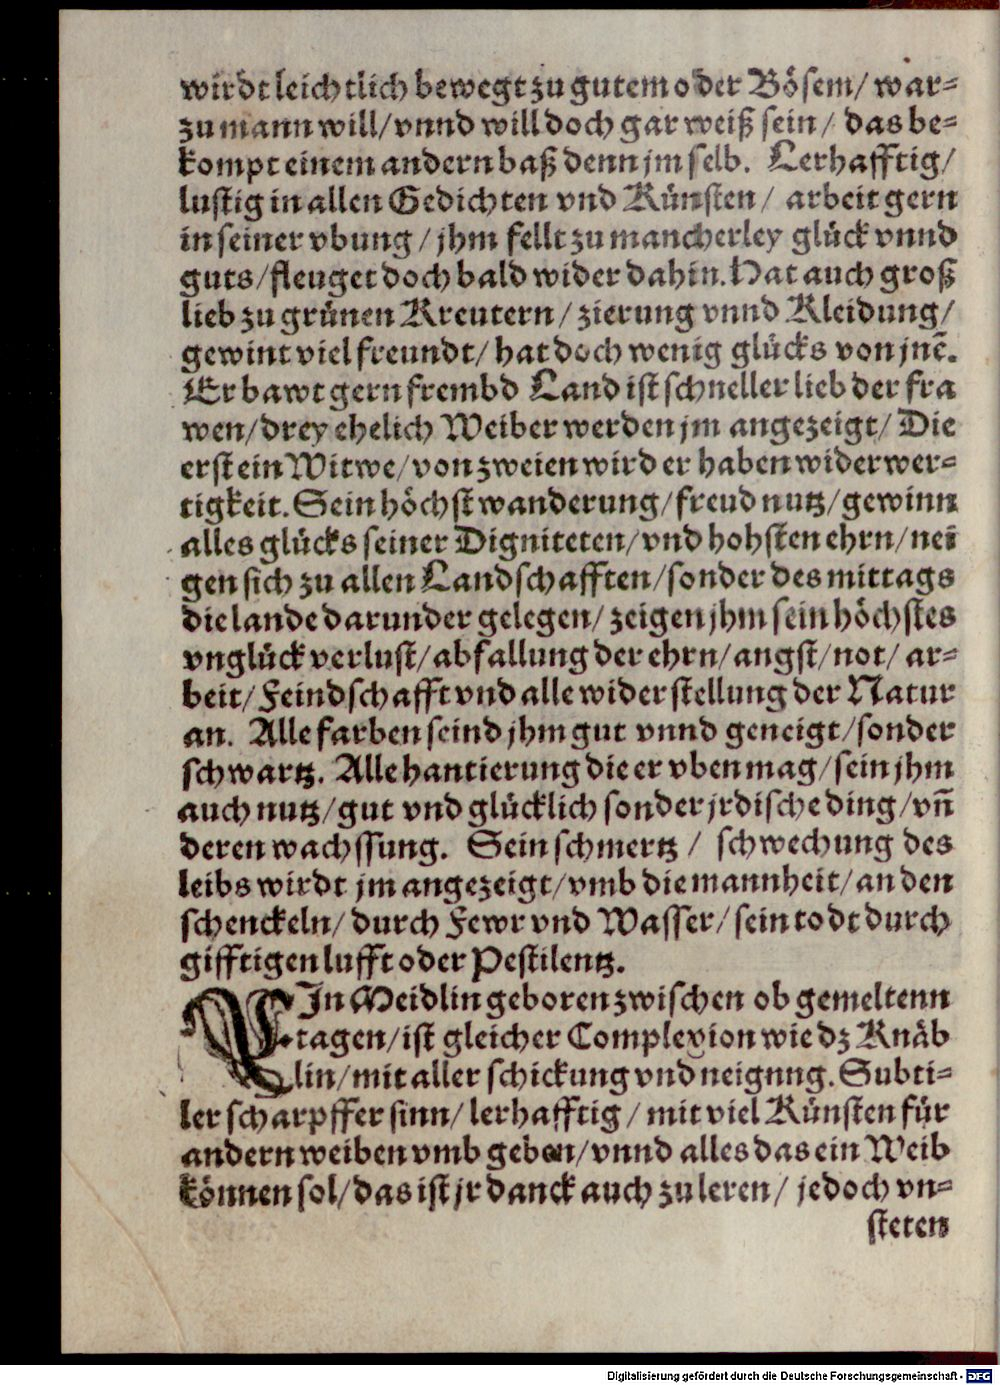 wirdt leichtlich bewegt zu gutem oder Bösem/ war-
zu mann will/ vnnd will doch gar weiß sein/ das be-
kompt einem andern baß denn jm selb. Lerhafftig/
lustig in allen Gedichten vnd Künsten/ arbeit gern
in seiner vbung/ jhm fellt zu mancherley glück vnnd
guts/ fleuget doch bald wider dahin. Hat auch groß
lieb zu grünen Kreutern/ zierung vnnd Kleidung/
gewint viel freundt/ hat doch wenig glücks von jnē.
Er bawt gern frembd Land ist schneller lieb der fra
wen/ drey ehelich Weiber werden jm angezeigt/ Die
erst ein Witwe/ von zweien wird er haben widerwer-
tigkeit. Sein höchst wanderung/ freud nutz/ gewinn
alles glücks seiner Digniteten/ vnd hohsten ehrn/ nei
gen sich zu allen Landschafften/ sonder des mittags
die lande darunder gelegen/ zeigen jhm sein höchstes
vnglück verlust/ abfallung der ehrn/ angst/ not/ ar-
beit/ Feindschafft vnd alle widerstellung der Natur
an. Alle farben seind jhm gut vnnd geneigt/ sonder
schwartz. Alle hantierung die er vben mag/ sein jhm
auch nutz/ gut vnd glücklich sonder jrdische ding/ vñ
deren wachssung. Sein schmertz / schwechung des
leibs wirdt jm angezeigt/ vmb die mannheit/ an den
schenckeln/ durch Fewr vnd Wasser/ sein todt durch
gifftigen lufft oder Pestilentz.
EIn Meidlin geboren zwischen ob gemeltenn
tagen/ ist gleicher Complexion wie dz Knäb
lin/ mit aller schickung vnd neignng. Subti-
ler scharpffer sinn/ lerhafftig/ mit viel Künsten für
andern weiben vmb geben/ vnnd alles das ein Weib
können sol/ das ist jr danck auch zu leren/ jedoch vn-
steten
Digitalisierung gefördert durch die Deutsche Forschungsgemeinschaft - DFG